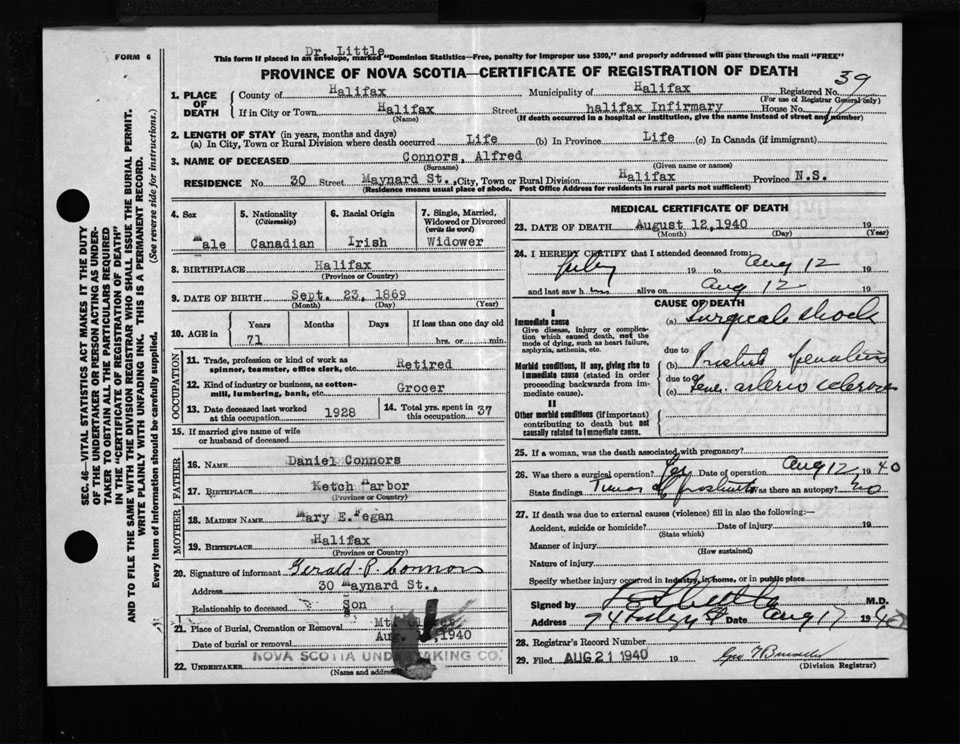 FORM 6
Dr. Little
This form if placed in an envelope, marked "Dominion Statistics—Free, penalty for improper use $300," and properly addressed will pass through the mail "FREE"
PROVINCE OF NOVA SCOTIA—CERTIFICATE OF REGISTRATION OF DEATH
39
1. PLACE OF DEATH
County of Halifax Municipality of Halifax Registered No.
(For use of Registrar General only)
If in City or Town Halifax Street halifax Infirmary House No.
(Name) (If death occurred in a hospital or institution, give the name instead of street and number)
2. LENGTH OF STAY (in years, months and days)
(a) In City, Town or Rural Division where death occurred Life (b) In Province Life (c) In Canada (if immigrant)
3. NAME OF DECEASED Connors, Alfred
(Surname) (Given name or names)
RESIDENCE No. 30 Street Maynard St., City, Town or Rural Division Halifax Province N.S.
(Residence means usual place of abode. Post Office Address for residents in rural parts not sufficient)
4. Sex
Male
5. Nationality
(Citizenship)
Canadian
6. Racial Origin
Irish
7. Single, Married, Widowed or Divorced
(write the word)
Widower
8. BIRTHPLACE Halifax
(Province or Country)
9. DATE OF BIRTH Sept. 23, 1869
(Month) (Day) (Year)
10. AGE in
Years Months Days If less than one day old
71 hrs. or min.
OCCUPATION
11. Trade, profession or kind of work as spinner, teamster, office clerk, etc. Retired
12. Kind of industry or business, as cotton-mill, lumbering, bank, etc. Grocer
13. Date deceased last worked at this occupation 1928
14. Total yrs. spent in this occupation 37
15. If married give name of wife or husband of deceased
FATHER
16. NAME Daniel Connors
17. BIRTHPLACE Ketch Harbor
(Province or Country)
MOTHER
18. MAIDEN NAME Mary E. Fegan
19. BIRTHPLACE Halifax
(Province or Country)
20. Signature of informant Gerald P. Connors
Address 30 Maynard St.,
Relationship to deceased Son
21. Place of Burial, Cremation or Removal
Date of burial or removal Aug. 1940
22. UNDERTAKER NOVA SCOTIA UNDERTAKING CO.
(Name and address)
MEDICAL CERTIFICATE OF DEATH
23. DATE OF DEATH August 12, 1940 19
(Month) (Day) (Year)
24. I HEREBY CERTIFY that I attended deceased from:
July 19 to Aug 12 19
and last saw him alive on Aug 12 19
CAUSE OF DEATH
I
Immediate cause
Give disease, injury or complication which caused death, not the mode of dying, such as heart failure, asphyxia, asthenia, etc.
(a) Surgical shock
due to
Morbid conditions, if any, giving rise to immediate cause (stated in order proceeding backwards from immediate cause).
(b)
due to
(c) arterio sclerosis
II
Other morbid conditions (if important) contributing to death but not causally related to immediate cause.
25. If a woman, was the death associated with pregnancy?
26. Was there a surgical operation? Yes Date of operation Aug 12 1940
State findings Was there an autopsy? no
27. If death was due to external causes (violence) fill in also the following:—
Accident, suicide or homicide? Date of injury 19
(State which)
Manner of injury
(How sustained)
Nature of injury
Specify whether injury occurred in industry, in home, or in public place
Signed by M.D.
Address Date Aug 17 1940
28. Registrar's Record Number
29. Filed AUG 21 1940 19
(Division Registrar)
SEC. 46—VITAL STATISTICS ACT MAKES IT THE DUTY
OF THE UNDERTAKER OR PERSON ACTING AS UNDER-
TAKER TO OBTAIN ALL THE PARTICULARS REQUIRED
IN THE "CERTIFICATE OF REGISTRATION OF DEATH"
AND TO FILE THE SAME WITH THE DIVISION REGISTRAR WHO SHALL ISSUE THE BURIAL PERMIT.
WRITE PLAINLY WITH UNFADING INK. THIS IS A PERMANENT RECORD.
Every item of information should be carefully supplied. (See reverse side for instructions.)